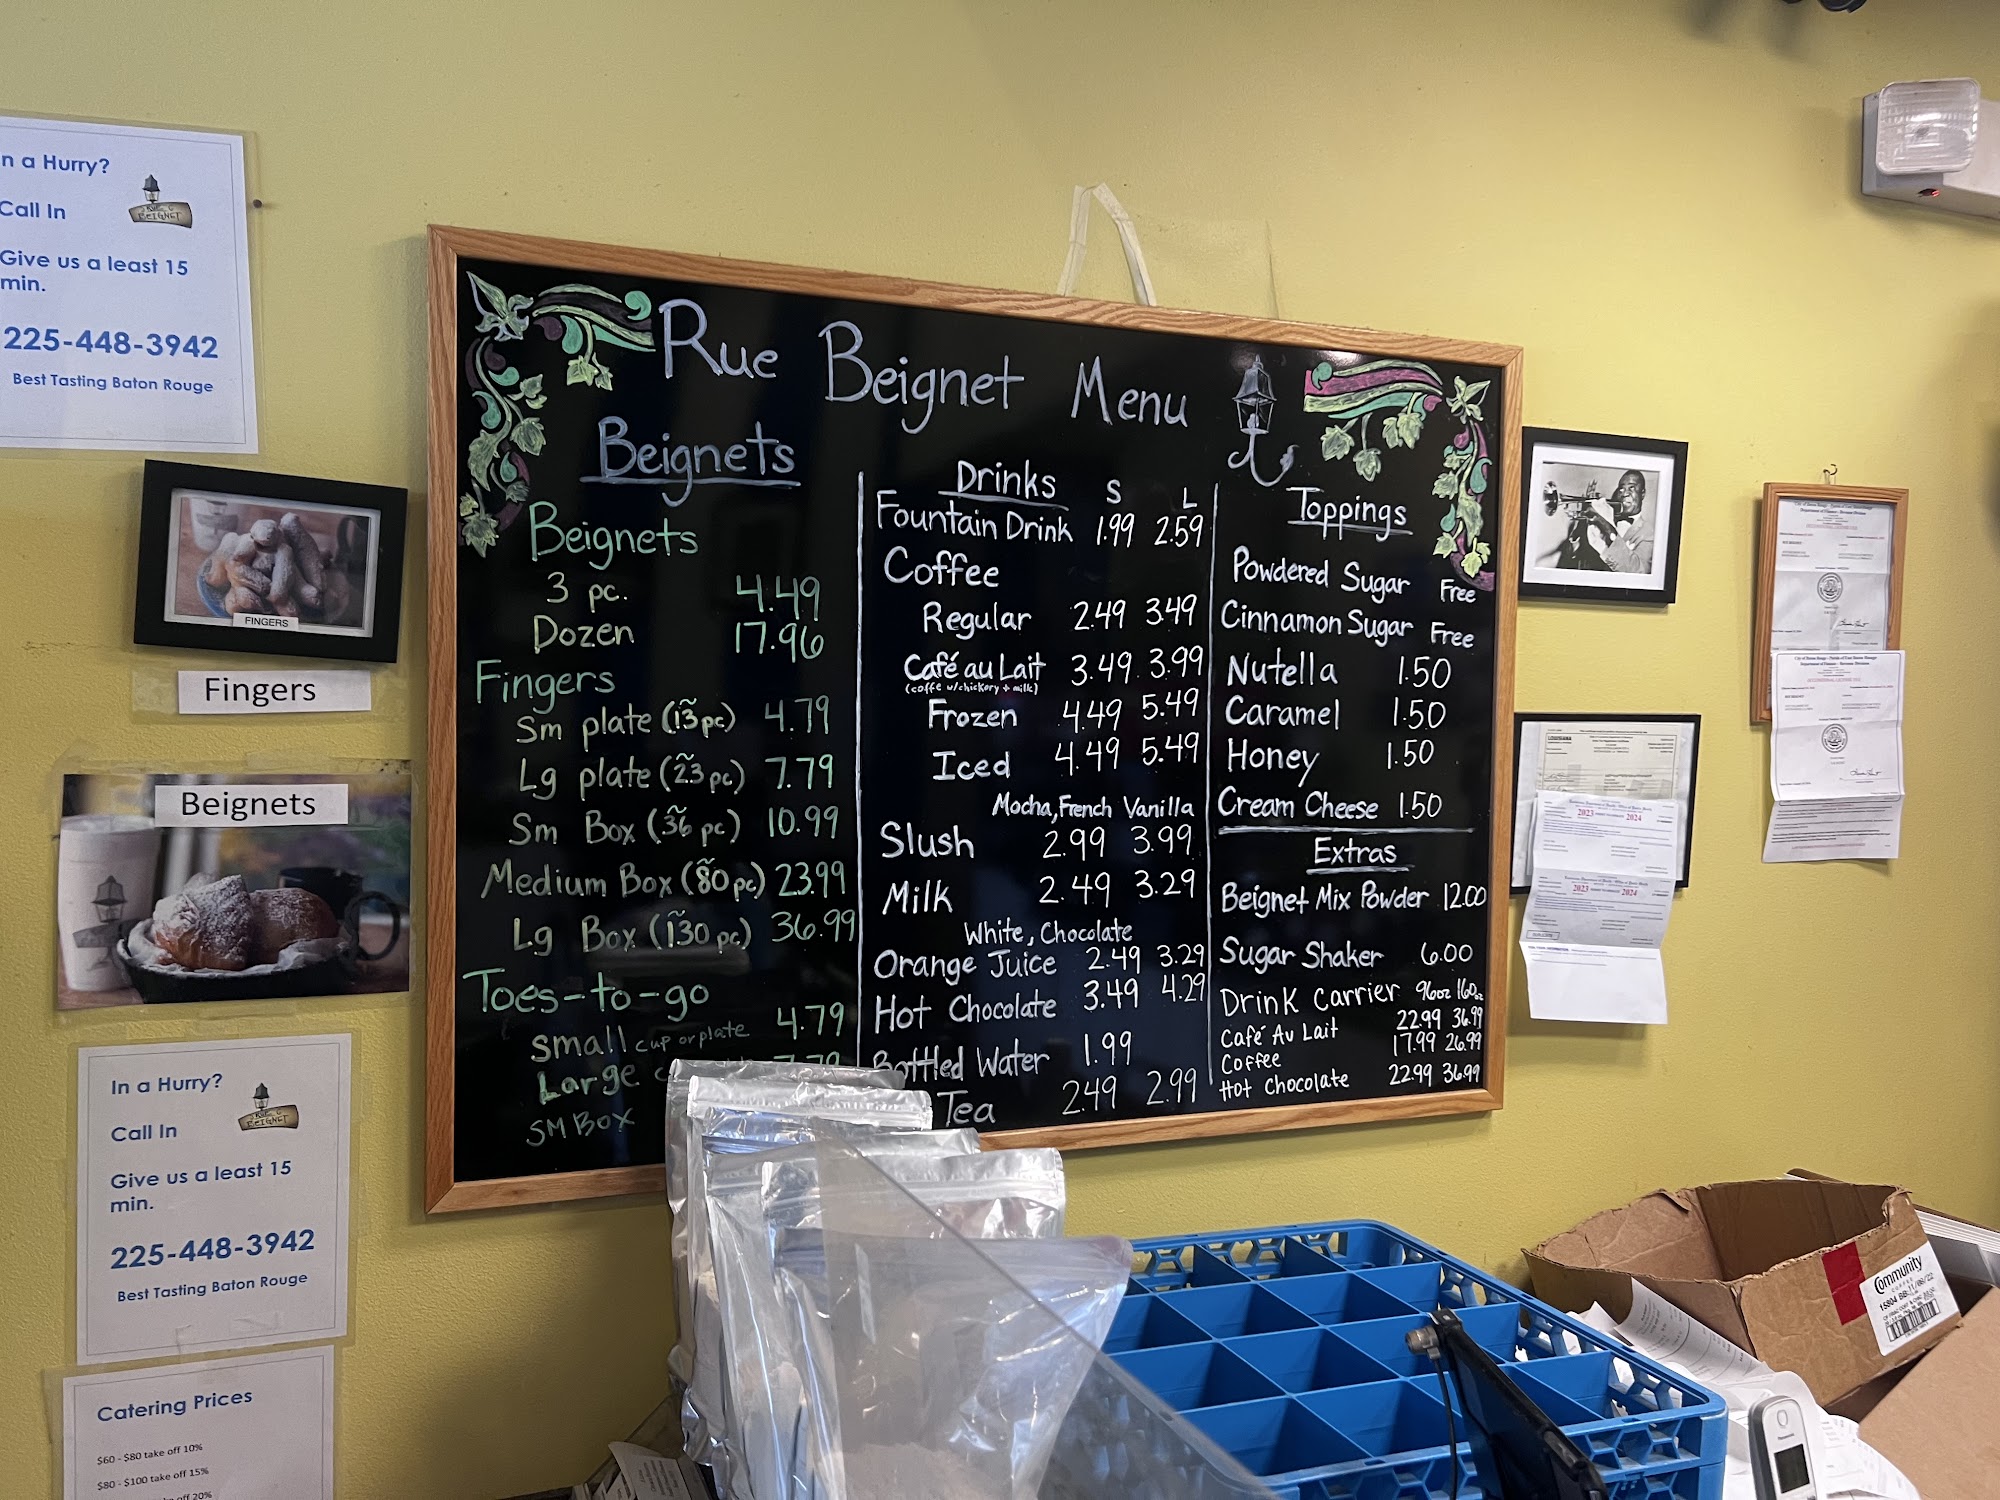 n a Hurry?
Call In
Give us a least 15
min.
225-448-3942
Best Tasting Baton Rouge
RUE
BEIGNET
FINGERS
Fingers
Beignets
In a Hurry?
Call In
Give us a least 15
min.
225-448-3942
Best Tasting Baton Rouge
RUE
BEIGNET
Catering Prices
$60 - $80 take off 10%
$80 - $100 take off 15%
off 20%
Rue Beignet Menu
Beignets
Beignets
3 pc. 4.49
Dozen 17.96
Fingers
Sm plate (~13 pc) 4.79
Lg plate (~23 pc) 7.79
Sm Box (~36 pc) 10.99
Medium Box (~80 pc) 23.99
Lg Box (~130 pc) 36.99
Toes-to-go
Small cup or plate 4.79
Large 7.79
SM BOX
Drinks S L
Fountain Drink 1.99 2.59
Coffee
Regular 2.49 3.49
Café au Lait 3.49 3.99
(coffe w/chickory + milk)
Frozen 4.49 5.49
Iced 4.49 5.49
Mocha, French Vanilla
Slush 2.99 3.99
Milk 2.49 3.29
White, Chocolate
Orange Juice 2.49 3.29
Hot Chocolate 3.49 4.29
Bottled Water 1.99
Tea 2.49 2.99
Toppings
Powdered Sugar Free
Cinnamon Sugar Free
Nutella 1.50
Caramel 1.50
Honey 1.50
Cream Cheese 1.50
Extras
Beignet Mix Powder 12.00
Sugar Shaker 6.00
Drink Carrier 96oz 160oz
Café Au Lait 22.99 36.99
Coffee 17.99 26.99
Hot Chocolate 22.99 36.99
LOUISIANA
2023 2024
2023 2024
Community
COFFEE
Panasonic